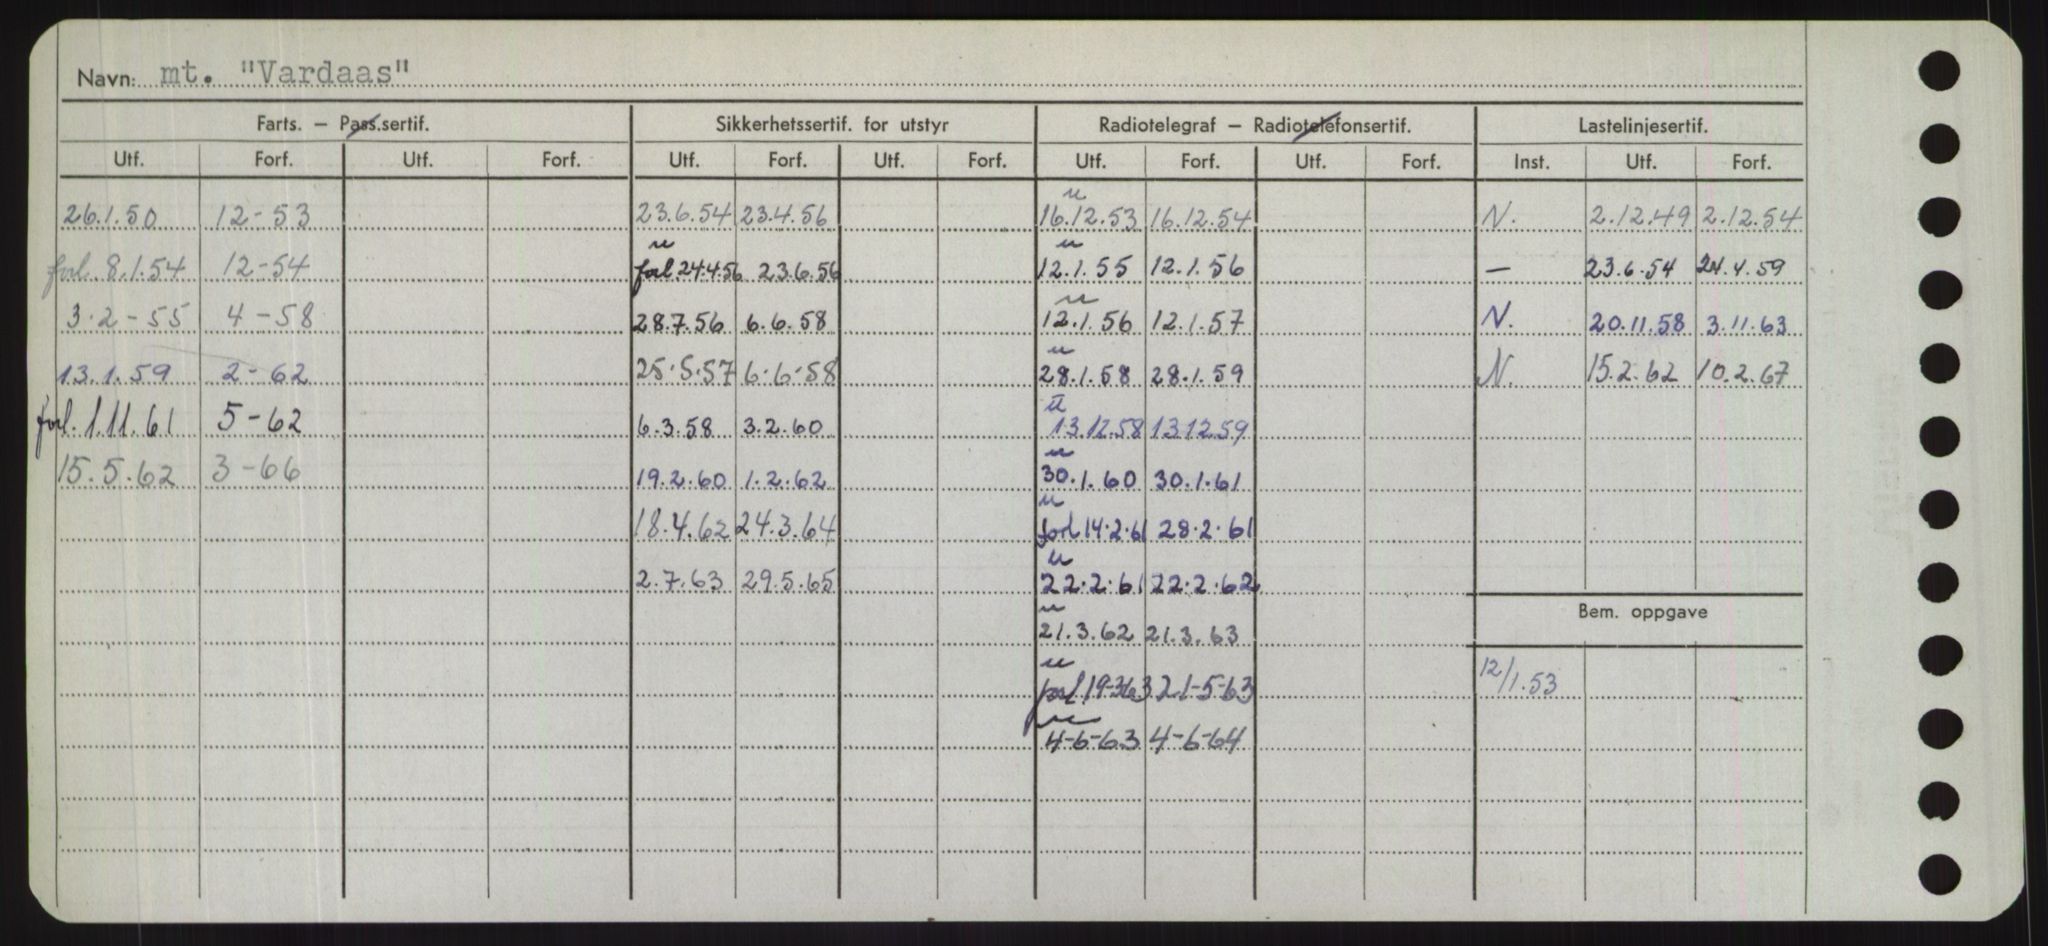 Navn: mt. "Vardaas"
Farts. – Pass.sertif. Sikkerhetssertif. for utstyr Radiotelegraf – Radiotelefonsertif. Lastelinjesertif.
Utf. Forf. Utf. Forf. Utf. Forf. Utf. Forf. Utf. Forf. Utf. Forf. Inst. Utf. Forf.
u
26.1.50 12-53 23.6.54 23.4.56 16.12.53 16.12.54 N. 2.12.49 2.12.54
u u
forl. 8.1.54 12-54 forl 24.4.56 23.6.56 12.1.55 12.1.56 — 23.6.54 24.4.59
u
3.2-55 4-58 28.7.56 6.6.58 12.1.56 12.1.57 N. 20.11.58 3.11.63
u
13.1.59 2-62 25.5.57 6.6.58 28.1.58 28.1.59 N. 15.2.62 10.2.67
u
forl. 1.11.61 5-62 6.3.58 3.2.60 13.12.58 13.12.59
u
15.5.62 3-66 19.2.60 1.2.62 30.1.60 30.1.61
u
18.4.62 24.3.64 forl 14.2.61 28.2.61
u
2.7.63 29.5.65 22.2.61 22.2.62
Bem. oppgave
u
21.3.62 21.3.63
u
forl. 19-3-63 21-5-63 12/1.53
u
4-6-63 4-6-64